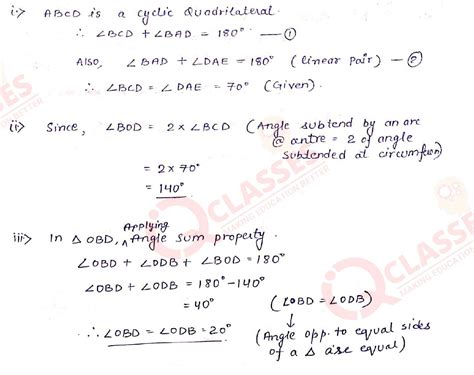 i.> ABCD is a cyclic Quadrilateral.
∴ ∠BCD + ∠BAD = 180° — ①
Also, ∠BAD + ∠DAE = 180° (linear pair) — ②
∴ ∠BCD = ∠DAE = 70° (Given).
ii> Since, ∠BOD = 2 x ∠BCD (Angle subtend by an arc
@ centre = 2 of angle
Subtended at circumfern)
= 2 x 70°
= 140°
iii> In △ OBD, Applying Angle sum property.
∠OBD + ∠ODB + ∠BOD = 180°
∠OBD + ∠ODB = 180° - 140°
= 40° (∠OBD = ∠ODB)
∴ ∠OBD = ∠ODB = 20° (Angle opp. to equal sides
of a △ are equal)
IQ CLASSES
MAKING EDUCATION BETTER